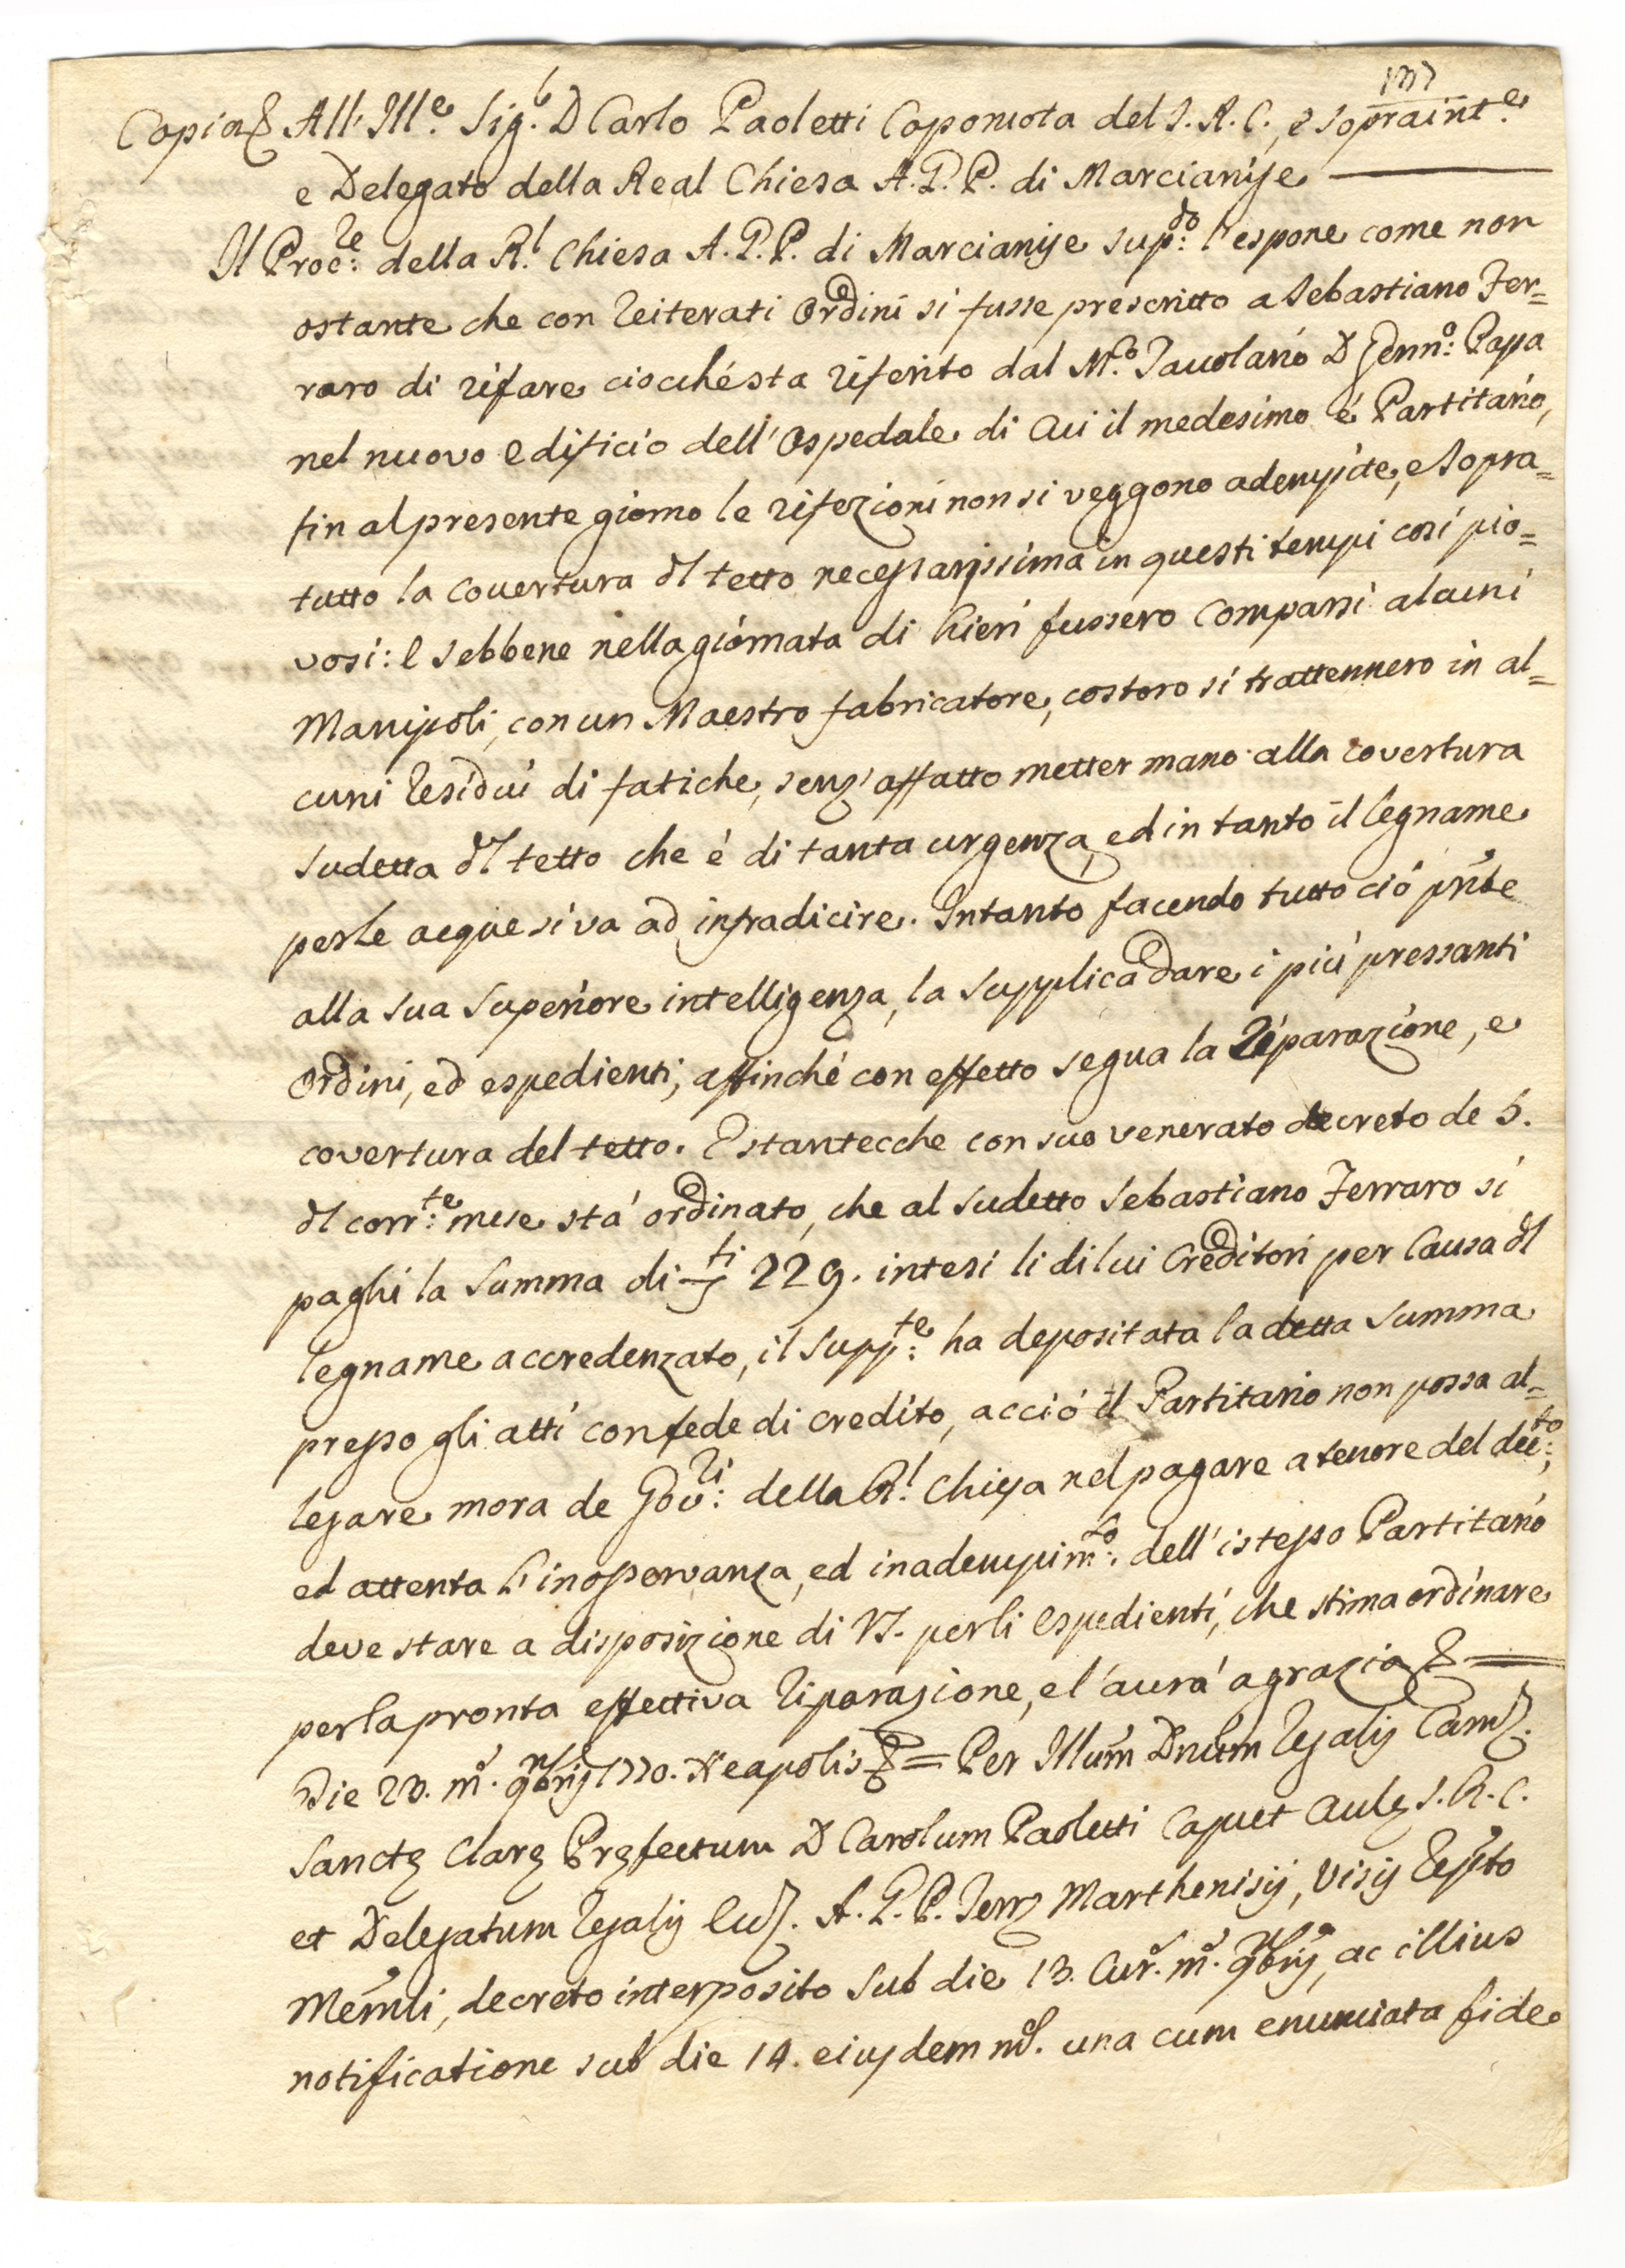 137
Copia & All' Ill.e Sig.r D Carlo Paoletti Caporuota del S. R. C., e sopraint.e
e Delegato della Real Chiesa A. P. P. di Marcianise
Il Proc.re della R.l Chiesa A. P. P. di Marcianise sup.do l'espone come non
ostante che con reiterati ordini si fusse prescritto a Sebastiano Fer=
raro di rifare ciocché sta riferito dal M.co Tavolario D Genn.o Papa
nel nuovo edificio dell'Ospedale di cui il medesimo é Partitario,
fin al presente giorno le rifezioni non si veggono adempite, e sopra=
tutto la covertura dl tetto necessarissima in questi tempi così pio=
vosi: e sebbene nella giornata di hieri fussero comparsi alcuni
Manipoli, con un Maestro fabricatore, costoro si trattennero in al=
cuni residui di fatiche, senz'affatto metter mano alla covertura
sudetta dl tetto che é di tanta urgenza, ed in tanto il legname
per le acque si va ad infradicire. Intanto facendo tutto ció pnte
alla sua superiore intelligenza, la supplica dare i piú pressanti
ordini, ed espedienti, affinché con effetto segua la reparazione, e
covertura del tetto. E stantecche con suo venerato decreto de 5.
dl corr.te mese stá ordinato, che al sudetto Sebastiano Ferraro si
paghi la summa di ti 229. intesi li di lui Creditori per causa dl
legname accredenzato, il supp.te ha depositata la detta summa
presso gli atti con fede di credito, acció il Partitario non possa al=
legare mora de Gov.ri della R.l Chiesa nel pagare a tenore del dec.to,
ed attenta l'inosservanza, ed inadempim.to dell'istesso Partitario
deve stare a disposizione di VS. per li espedienti, che stima ordinare
per la pronta effettiva riparazione, e l'avrá a grazia &
Die 23. m. 9bris 1770. Neapolis & = Per Illum Dnum Regalis Cam.
Sanctę Clarę Pręfectum D Carolum Paoletti Caput Aulę S. R. C.
et Delegatum Regalis Ecc. A. P. P. Terrę Marthenisij, Visis rețto
Memli, decreto interposito sub die 13. cur. m. 9bris, ac illius
notificatione sub die 14. eiusdem m. una cum enunciata fide